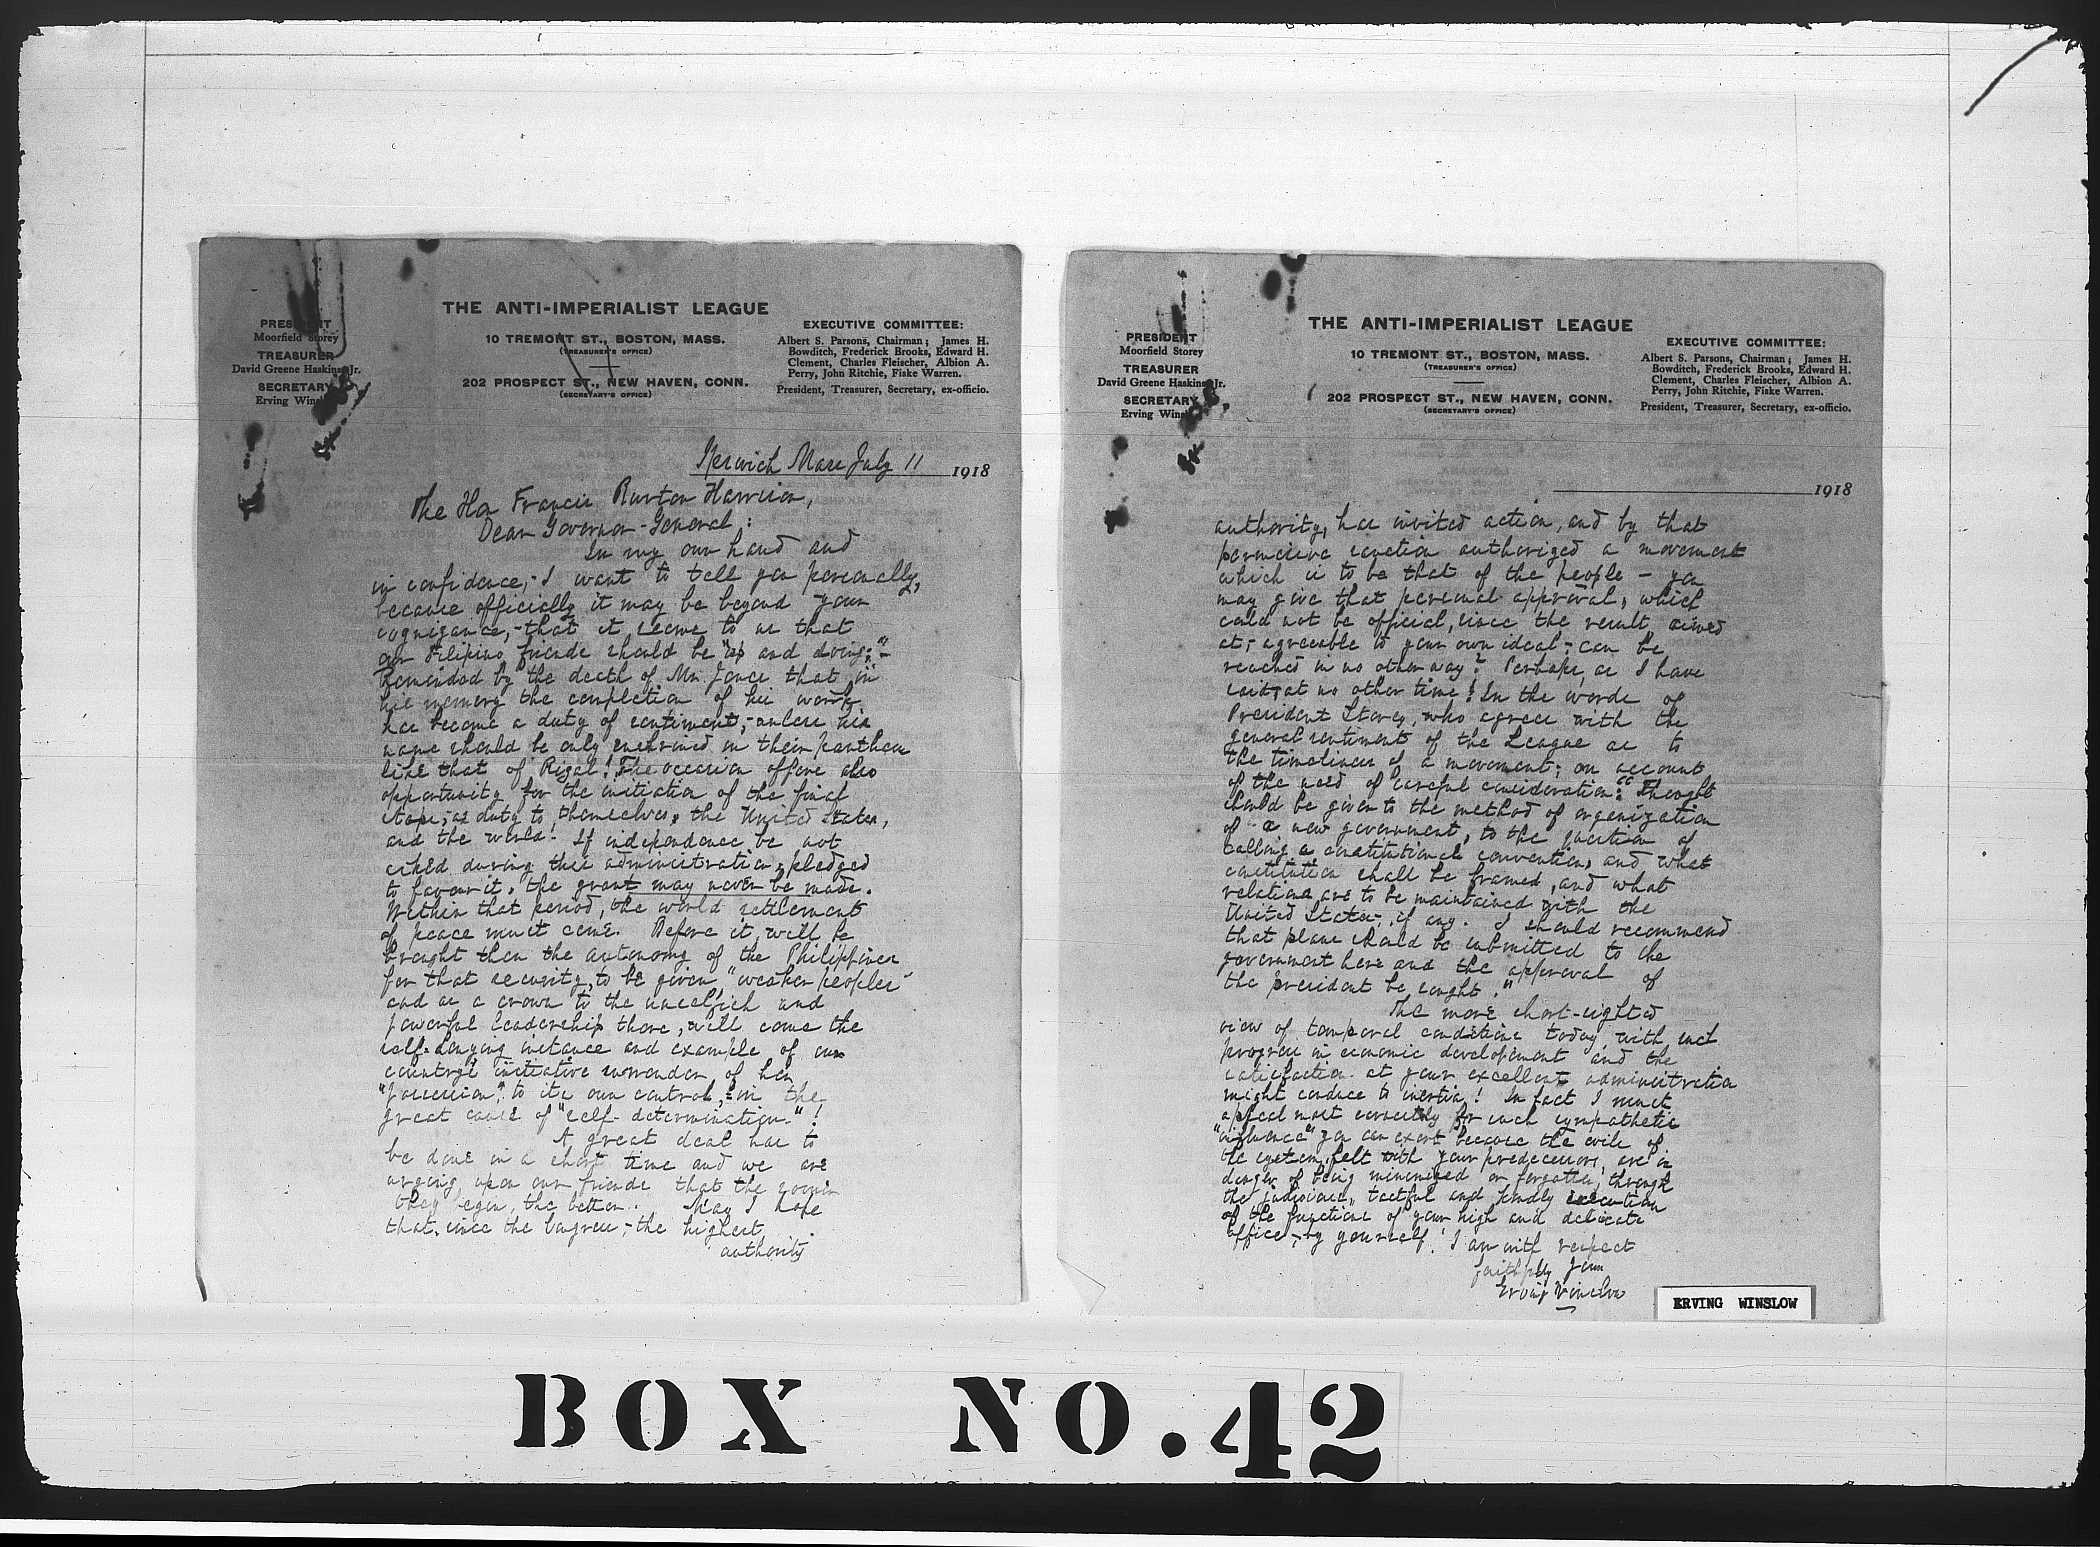 THE ANTI-IMPERIALIST LEAGUE
10 TREMONT ST., BOSTON, MASS.
(TREASURER'S OFFICE)
202 PROSPECT ST., NEW HAVEN, CONN.
(SECRETARY'S OFFICE)
PRESIDENT
Moorfield Storey
TREASURER
David Greene Haskins, Jr.
SECRETARY
Erving Winslow
EXECUTIVE COMMITTEE:
Albert S. Parsons, Chairman; James H.
Bowditch, Frederick Brooks, Edward H.
Clement, Charles Fleischer, Albion A.
Perry, John Ritchie, Fiske Warren.
President, Treasurer, Secretary, ex-officio.
Ipswich Mass July 11 1918
The Hon Francis Burton Harrison,
Dear Governor-General:
In my own hand and
in confidence,- I want to tell you personally,
because officially it may be beyond your
cognizance,- that it seems to us that
our Filipino friends should be "up and doing;"-
Reminded by the death of Mr. Jones that in
his memory the completion of his work
has become a duty of sentiment,- unless his
name should be only enshrined in their pantheon
like that of Rizal! The occasion offers also
opportunity for the initiation of the final
steps; as duty to themselves, the United States,
and the world! If independence be not
asked during this administration, pledged
to favour it, the grant may never be made.
Within that period, the world settlement
of peace must come. Before it, will be
brought then the autonomy of the Philippines
for that security, to be given, "weaker peoples"
and as a crown to the unselfish and
powerful leadership there, will come the
self-denying instance and example of our
country's initiative surrender of her
"possession", to its own control,- in the
great cause of "self-determination"!
A great deal has to
be done in a short time and we are
urging upon our friends that the sooner
they begin, the better. May I hope
that, since the Congress,- the highest
authority
THE ANTI-IMPERIALIST LEAGUE
10 TREMONT ST., BOSTON, MASS.
(TREASURER'S OFFICE)
202 PROSPECT ST., NEW HAVEN, CONN.
(SECRETARY'S OFFICE)
PRESIDENT
Moorfield Storey
TREASURER
David Greene Haskins, Jr.
SECRETARY
Erving Winslow
EXECUTIVE COMMITTEE:
Albert S. Parsons, Chairman; James H.
Bowditch, Frederick Brooks, Edward H.
Clement, Charles Fleischer, Albion A.
Perry, John Ritchie, Fiske Warren.
President, Treasurer, Secretary, ex-officio.
1918
authority, has invited action, and by that
permissive sanction authorized a movement
which is to be that of the people - you
may give that personal approval, which
could not be official, since the result aimed
at,- agreeable to your own ideal,- can be
reached in no other way? Perhaps, as I have
said, at no other time! In the words of
President Storey, who agrees with the
general sentiment of the League as to
the timeliness of a movement; on account
of the need of careful consideration: "Thought
should be given to the method of organization
of a new government, to the question of
calling a constitutional convention, and what
constitution shall be framed, and what
relations are to be maintained with the
United States, if any. I should recommend
that plans should be submitted to the
government here and the approval of
the president be sought."
The more short-sighted
view of temporal conditions today, with such
progress in economic development and the
satisfaction at your excellent administration
might conduce to inertia! In fact I must
appeal most earnestly for such sympathetic
"influence" you can exert because the evils of
the system, felt with your predecessors, are in
danger of being minimized or forgotten, through
the judicious, tactful and kindly execution
of the functions of your high and delicate
office,- by yourself! I am with respect
faithfully yours
Erving Winslow
ERVING WINSLOW
BOX NO.42